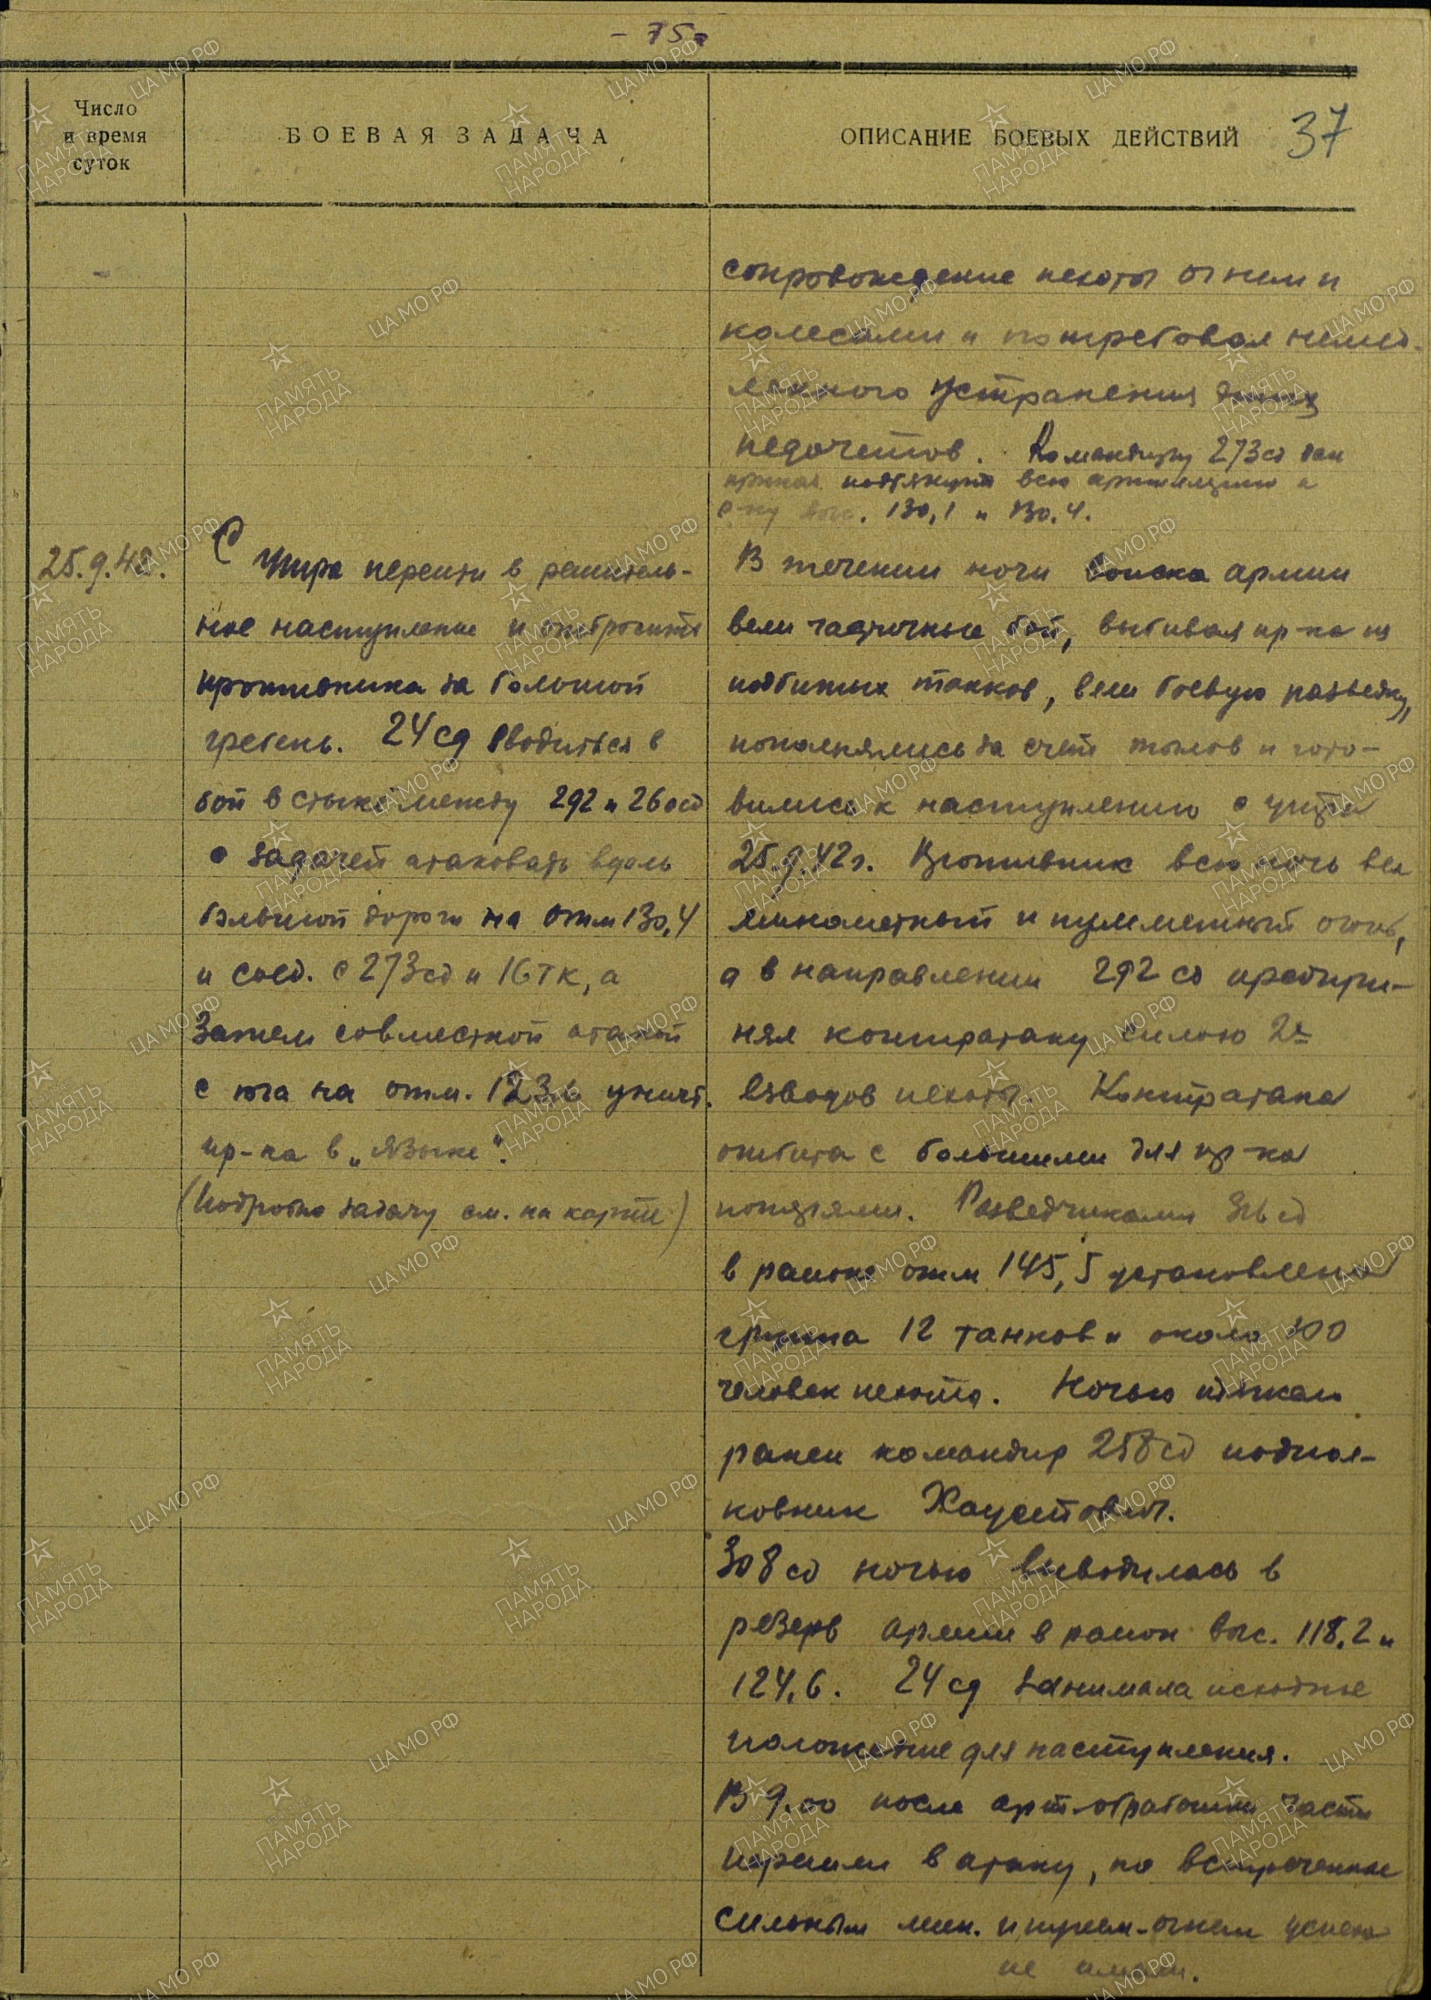 - 75 -
37
Число
и время
суток
БОЕВАЯ ЗАДАЧА
ОПИСАНИЕ БОЕВЫХ ДЕЙСТВИЙ
сопровождение пехоты огнем и
колесами и потребовал немед-
ленного устранения этих
недочетов. Командиру 273 сд дан
приказ подтянуть всю артиллерию к
выс. 130,1 и 130,4.
25.9.42.
С утра перейти в решитель-
ное наступление и отбросить
противника за большой
гребень. 24 сд вводиться в
бой в стыке между 292 и 260 сд
с задачей атаковать вдоль
большой дороги на отм 130,4
и соед. с 273 сд и 16 тк, а
затем совместной атакой
с юга на отм. 123,6 уничт.
пр-ка в „Языке".
(Подробно задачу см. на карте)
В течении ночи войска армии
вели частичные бои, выбивая пр-ка из
подбитых танков, вели боевую разведку,
пополнялись за счет тылов и гото-
вились к наступлению с утра
25.9.42г. Противник всю ночь вел
минометный и пулеметный огонь,
а в направлении 292 сд предпри-
нял контратаку силою 2х
взводов пехоты. Контратака
отбита с большими для пр-ка
потерями. Разведчиками 316 сд
в районе отм 145,5 установлена
группа 12 танков и около 300
человек пехоты. Ночью тяжело
ранен командир 258 сд подпол-
ковник Хаустович.
308 сд ночью выводилась в
резерв армии в район выс. 118,2 и
124,6. 24 сд занимала исходное
положение для наступления.
В 9.00 после арт-обработки части
перешли в атаку, но встреченные
сильным мин. и пулем-огнем успеха
не имели.